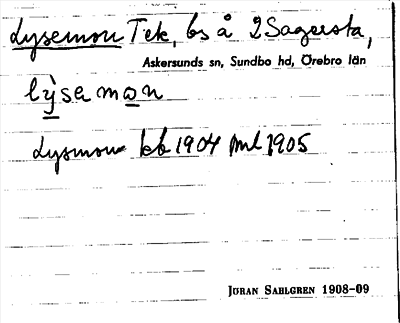 Lysemon Tek, bs å 2 Sagersta,
Askersunds sn, Sundbo hd, Örebro län
lỳsemon
Lysmon kb 1904 pml 1905
JÖRAN SAHLGREN 1908-09